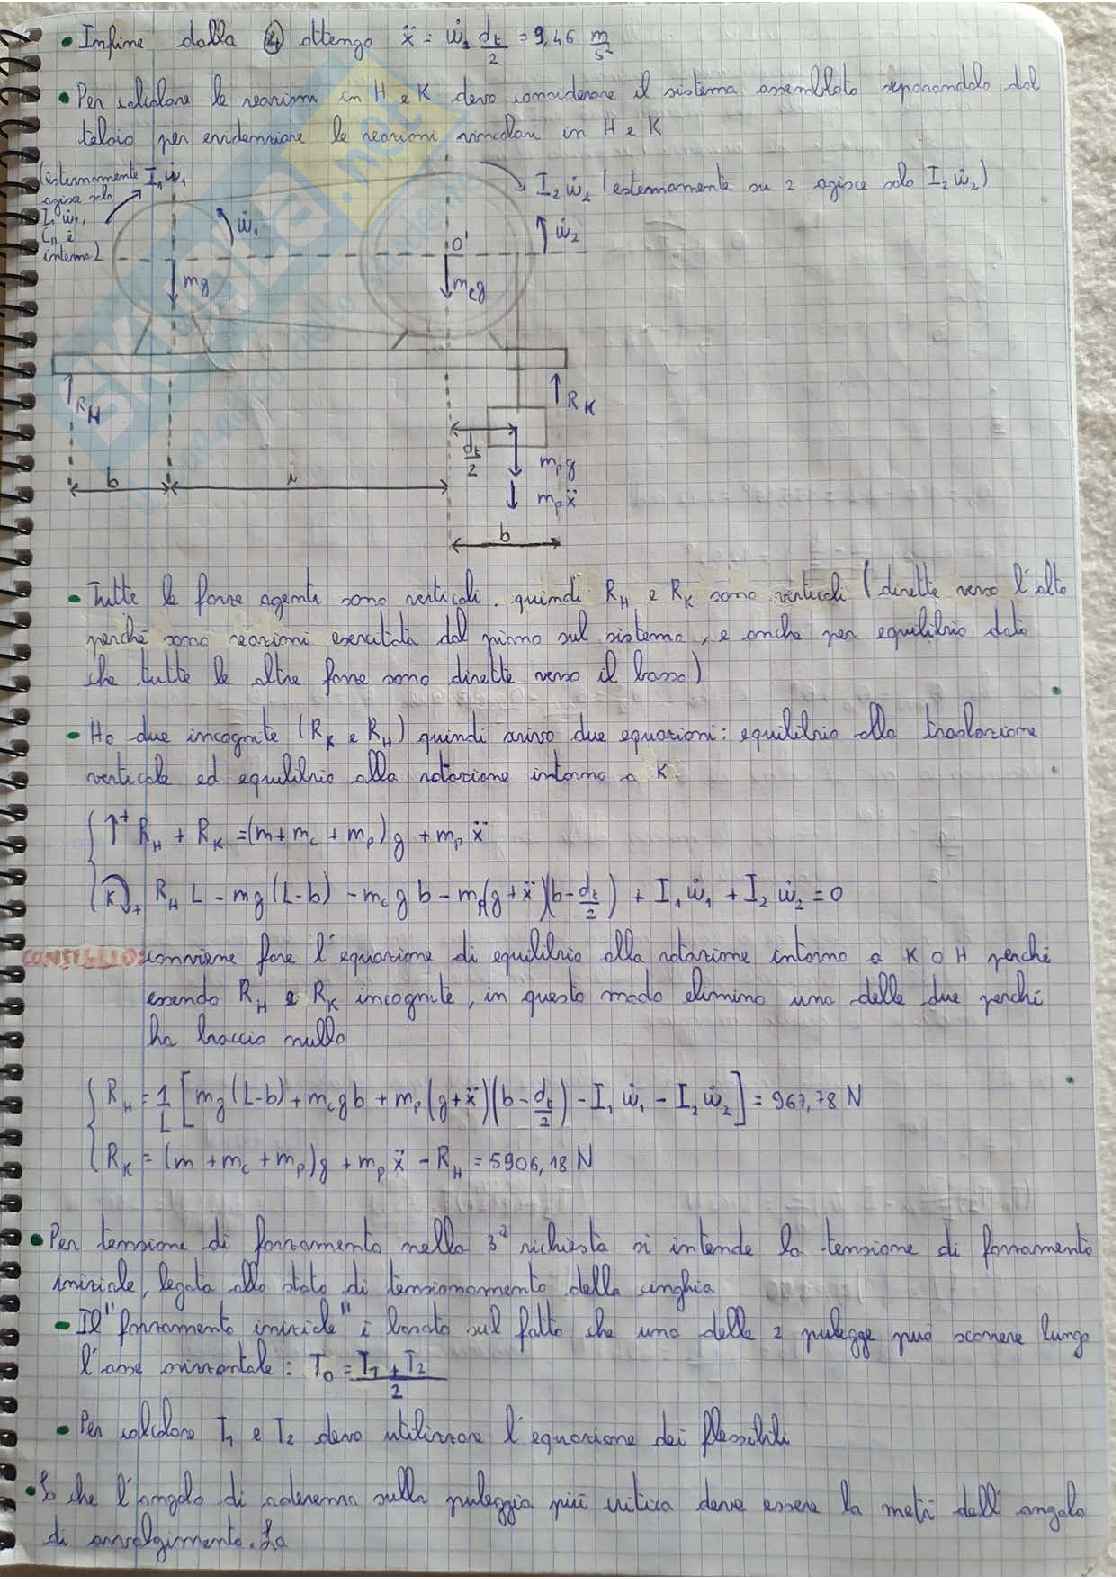 • Infine dalla ④ ottengo ẍ = ω̇₂ dt/2 = 9,46 m/s²
• Per calcolare le reazioni in H e K devo considerare il sistema assemblato separandolo dal
telaio per evidenziare le reazioni vincolari in H e K
(esternamente I₁ω̇₁
agisce solo
I₁ω̇₁,
Cm è
interna)
I₂ω̇₂ (esternamente su 2 agisce solo I₂ω̇₂)
ω̇₁
O'
ω̇₂
mg
mcg
RH
RK
dt/2
mpg
b
i
mpẍ
b
- Tutte le forze agenti sono verticali, quindi RH e RK sono verticali (dirette verso l'alto
perché sono reazioni esercitate dal perno sul sistema, e anche per equilibrio dato
che tutte le altre forze sono dirette verso il basso)
- Ho due incognite (RK e RH) quindi scrivo due equazioni: equilibrio alla traslazione
verticale ed equilibrio alla rotazione intorno a K
↑+ RH + RK = (m + mc + mp)g + mpẍ
K+ RH L - mg(L-b) - mcgb - mp(g+ẍ)(b - dt/2) + I₁ω̇₁ + I₂ω̇₂ = 0
CONSIGLIO: conviene fare l'equazione di equilibrio alla rotazione intorno a K o H perché
essendo RH e RK incognite, in questo modo elimino una delle due perché
ha braccio nullo
RH = 1/L [mg(L-b) + mcgb + mp(g+ẍ)(b - dt/2) - I₁ω̇₁ - I₂ω̇₂] = 967,78 N
RK = (m + mc + mp)g + mpẍ - RH = 5906,18 N
• Per tensione di forzamento nella 3ª richiesta si intende la tensione di forzamento
iniziale, legata allo stato di tensionamento della cinghia
- Il "forzamento iniziale" è basato sul fatto che una delle 2 pulegge può scorrere lungo
l'asse orizzontale: T₀ = T₁ + T₂/2
• Per calcolare T₁ e T₂ devo utilizzare l'equazione dei flessibili
• So che l'angolo di aderenza sulla puleggia più critica deve essere la metà dell'angolo
di avvolgimento. La